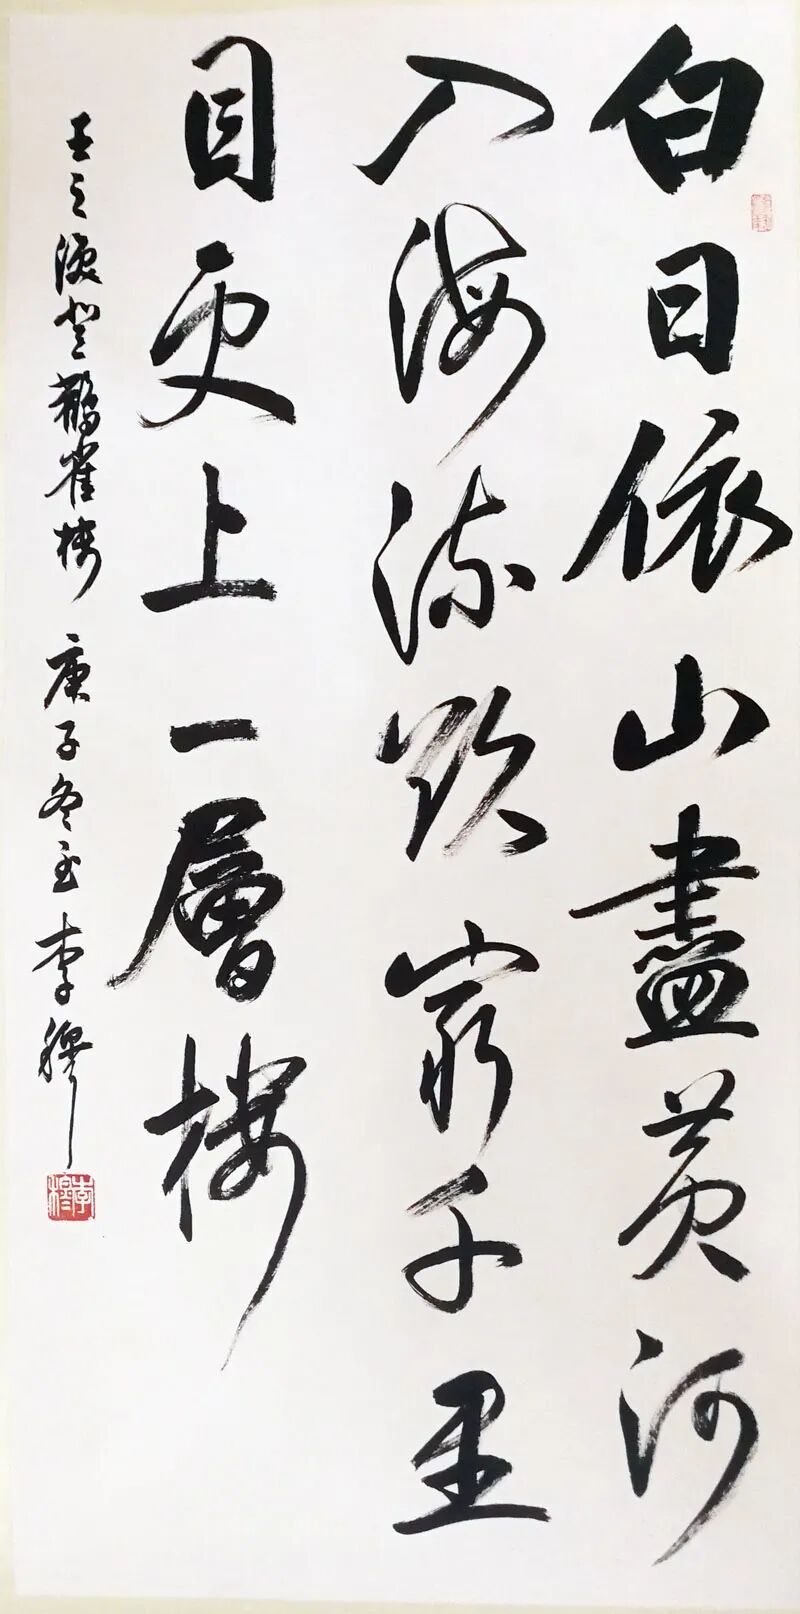 白日依山盡黄河
入海流欲窮千里
目更上一層樓
王之渙登鸛雀樓 庚子冬至 李穆
李穆